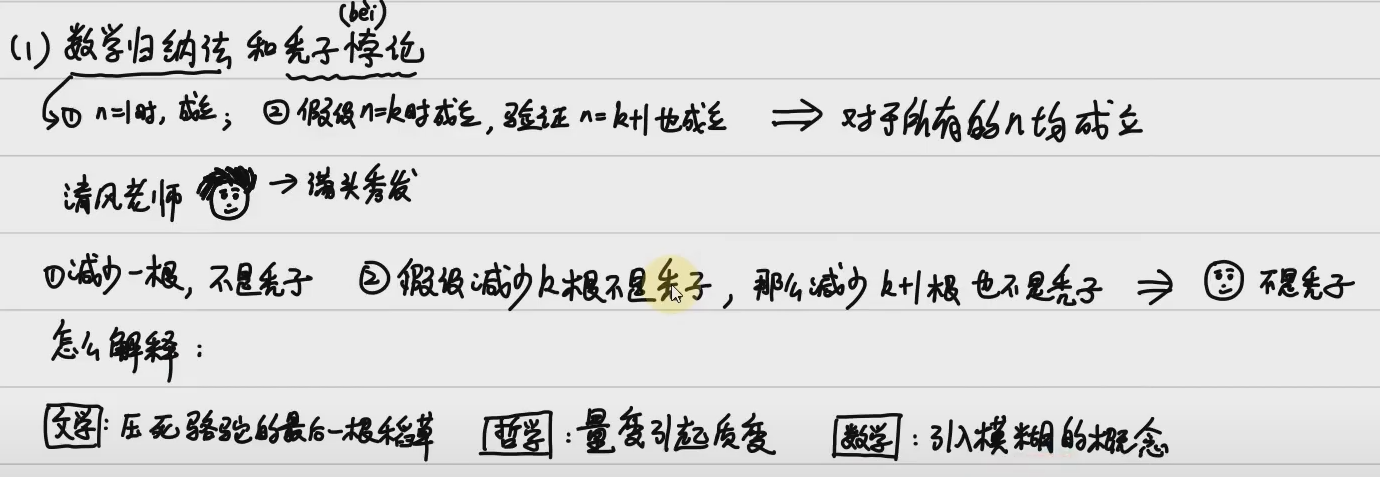 (bèi)
(1) 数学归纳法 和秃子悖论
① n=1时, 成立; ② 假设n=k时成立, 验证 n=k+1 也成立 ⟹ 对于所有的n均成立
清风老师 → 满头秀发
①减少一根, 不是秃子 ② 假设减少k根不是秃子, 那么减少 k+1根 也不是秃子 ⟹ 不是秃子
怎么解释:
文学: 压死骆驼的最后一根稻草 哲学: 量变引起质变 数学: 引入模糊的概念